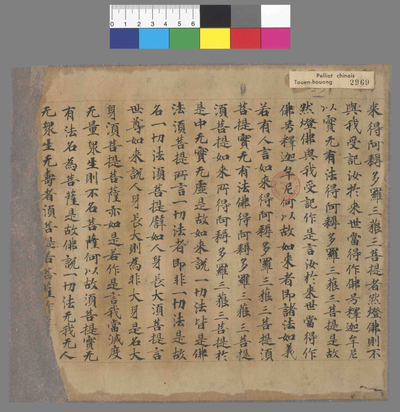 Pelliot chinois
Touen-houang
2969
来得阿耨多羅三藐三菩提者然燈佛則不
與我受記汝於来世當得作佛号釋迦牟尼
以實无有法得阿耨多羅三藐三菩提是故
然燈佛與我受記作是言汝於来世當得作
佛号釋迦牟尼何以故如来者即諸法如義
若有人言如来得阿耨多羅三藐三菩提湏
菩提實无有法佛得阿耨多羅三藐三菩提
湏菩提如来所得阿耨多羅三藐三菩提於
是中无實无虛是故如来說一切法皆是佛
法湏菩提所言一切法者即非一切法是故
名一切法湏菩提譬如人身長大湏菩提言
世尊如来說人身長大則為非大身是名大
身湏菩提菩薩亦如是若作是言我當滅度
无量衆生則不名菩薩何以故湏菩提實无
有法名為菩薩是故佛說一切法无我无人
无衆生无壽者湏菩提若菩薩作